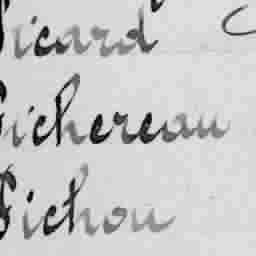 Picard
Pichereau
Pichon